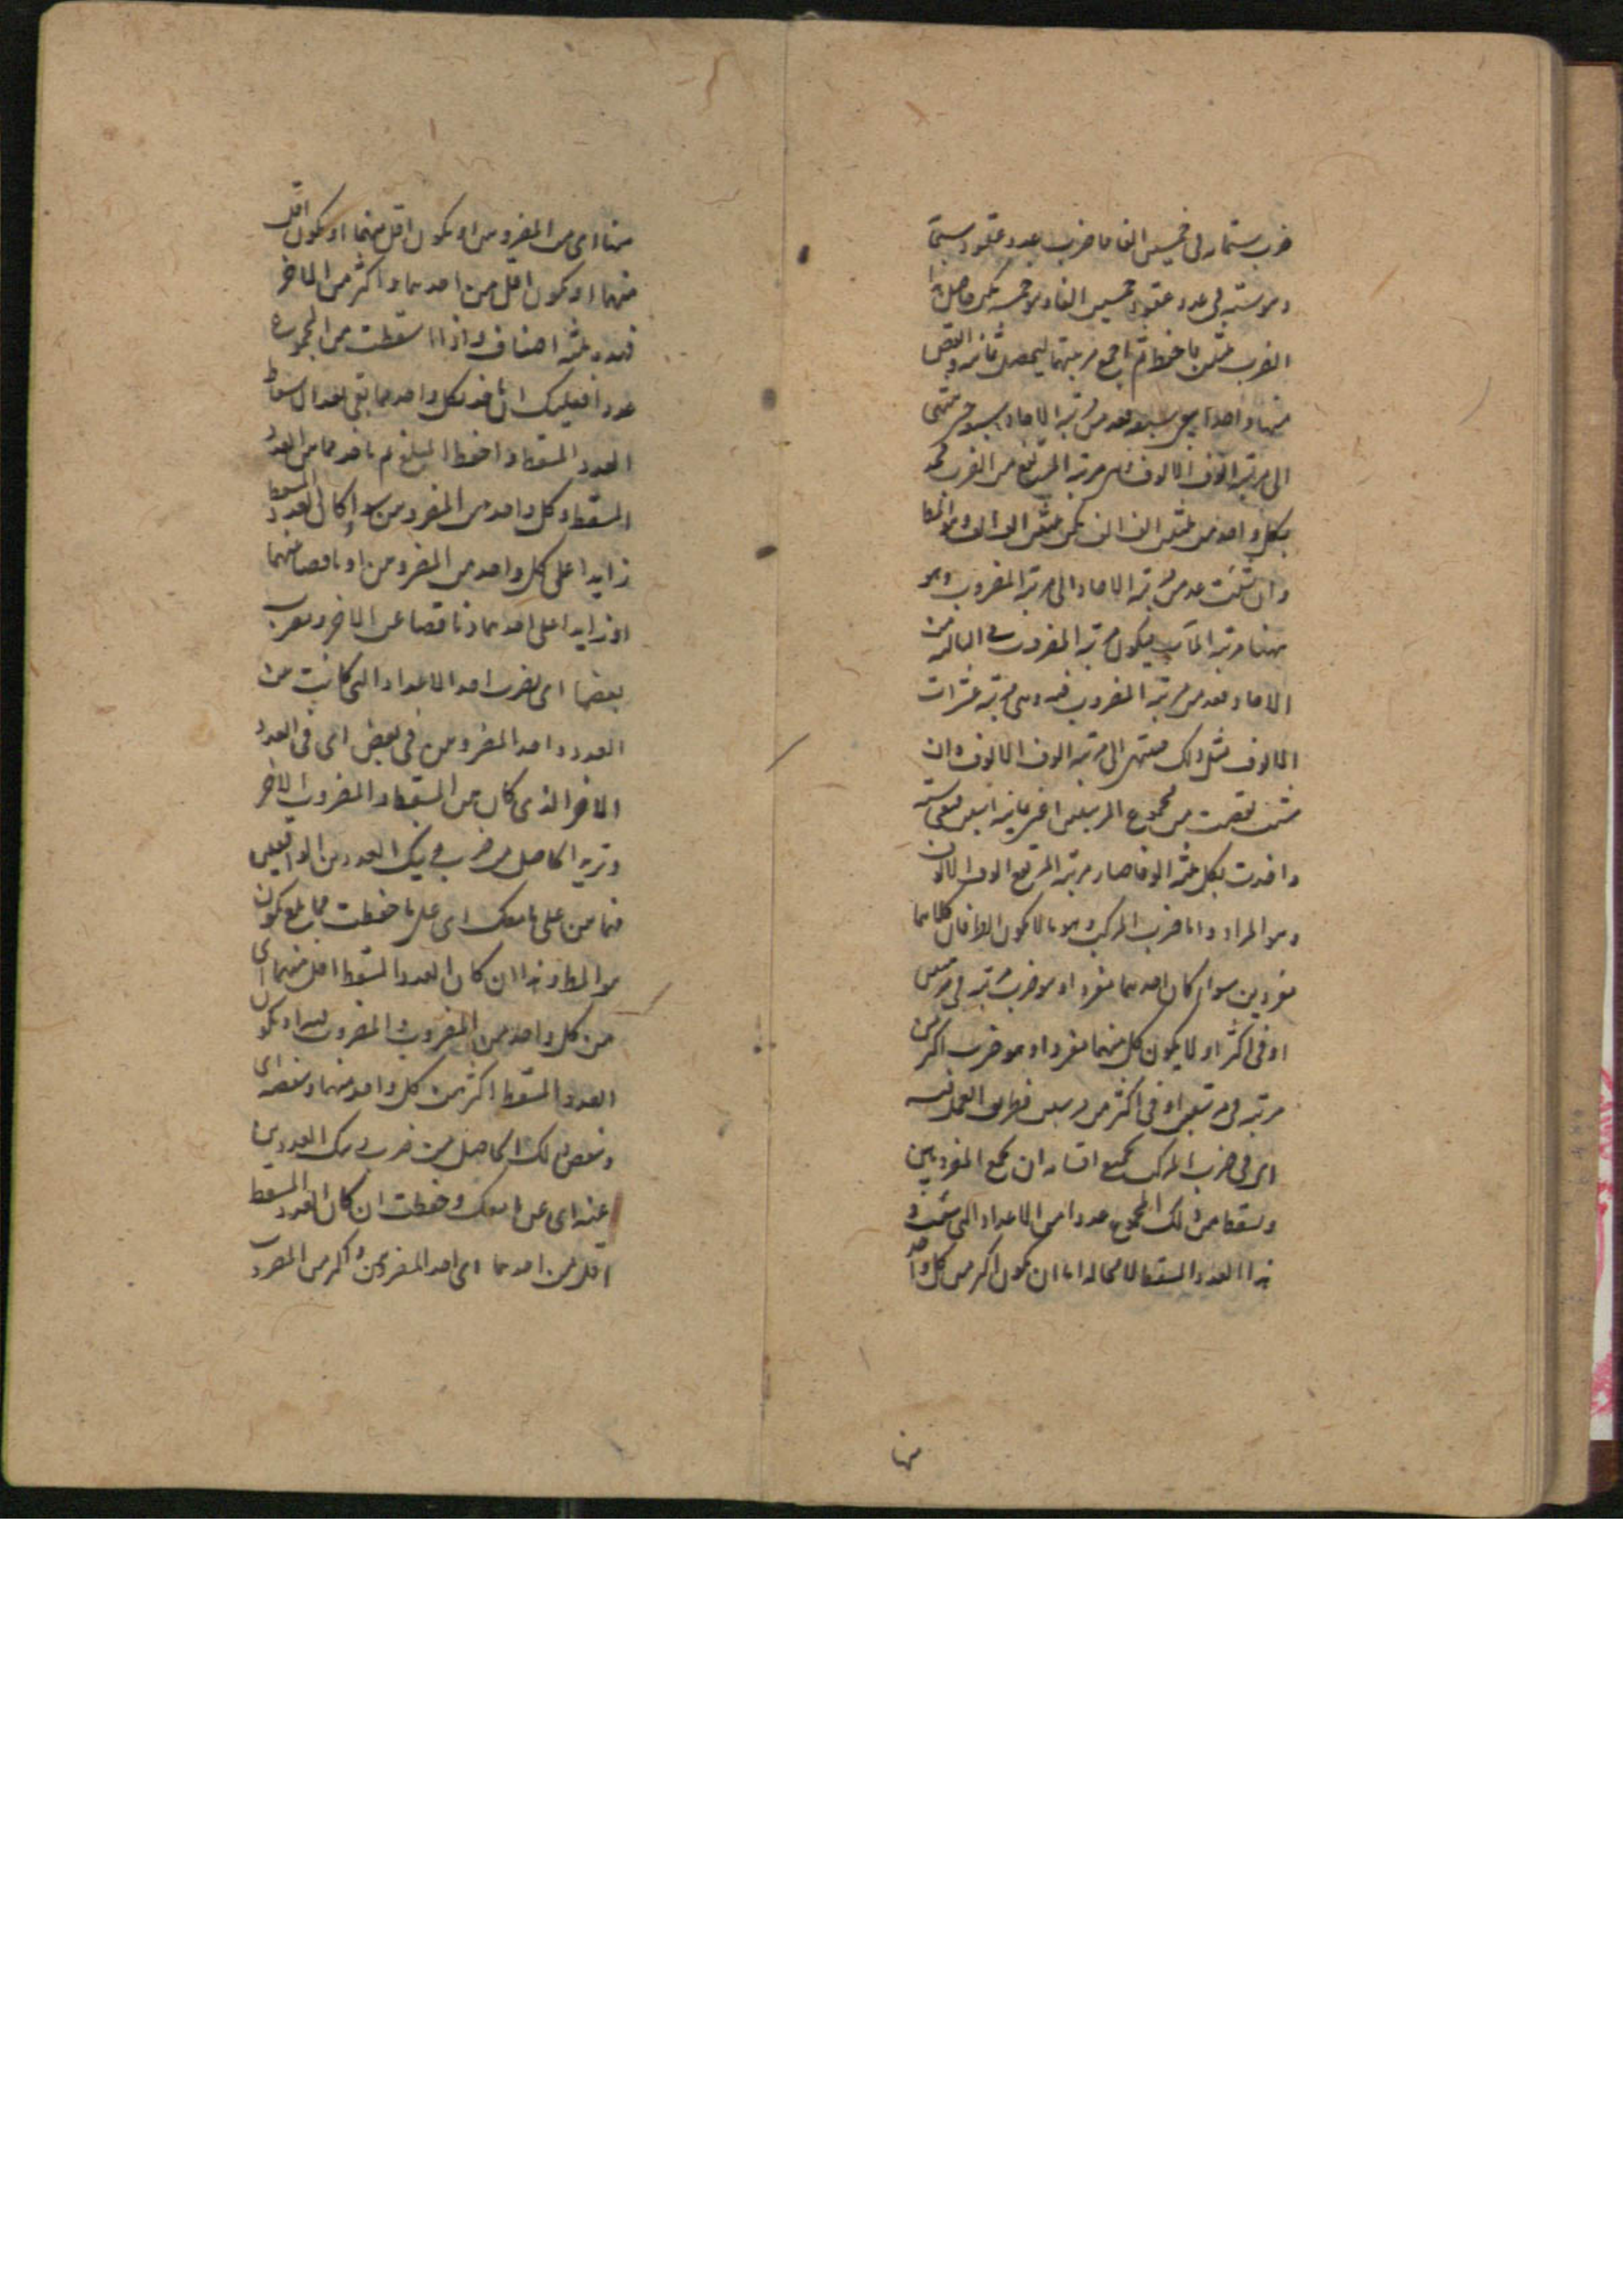 ضرب ستمائة فى خمسين الفا فاضرب عدد عقود ستمائة
وهو ستة فى عدد عقود خمسين الفا وهو خمسة يكن حاصل
الضرب ثلثين فاحفظ ثم اجمع مرتبتهما ليحصل ثمانية وانقص
منها واحدا يبق سبعة فعد من مرتبة الاحاد سبعة حتى ينتهى
الى مرتبة الوف الالوف مرتبة المرتفع من الضرب فخذ
بكل واحد من ثلثين الف الف يكن ثلثين الف الف وهو المط
وان شئت عد من مرتبة الاحاد الى مرتبة المضروب وهو
ههنا مرتبة المآت فيكون مرتبة المضروب فى الثالثة من
الاحاد وعد من مرتبة المضروب فيه وهى مرتبة عشرات
الالوف مثل ذلك فينتهى الى مرتبة الوف الالوف وان
شئت نقصت من مجموع المرتبتين اعنى ثمانية اثنين تبقى ستة
واخذت بكل ثلثة الوفا صار مرتبة المرتفع الوف الالوف
وهو المراد واما ضرب المركب وهو ما لا يكون الطرفان كلاهما
مفردين سواء كان احدهما مفردا وهو ضرب مرتبة فى مرتبتين
او فى اكثر او لا يكون كل منهما مفردا وهو ضرب اكثر من
مرتبة فى مرتبتين او فى اكثر من مرتبتين فطريق العمل فيه
اى فى ضرب المركب بجميع اقسامه ان تجمع المضروبين
وتسقط من ذلك المجموع عددا من الاعداد التى شئت و
هذا العدد المسقط لا محالة اما ان يكون اكثر من كل واحد
منها
منها اى من المضروبين او يكون اقل منهما او يكون اقل
منهما او يكون اقل من احدهما واكثر من الاخر
فهذه ثلثة اصناف واذا اسقطت من المجموع
عددا فعليك ان تاخذ لكل واحد مما بقى بعد الاسقاط
العدد المسقط واحفظ المبلغ ثم تاخذ ما بين العدد
المسقط وكل واحد من المضروبين سواء كان العدد المسقط
زايدا على كل واحد من المضروبين او ناقصا منهما
او زايدا على احدهما وناقصا عن الاخر وتضرب
بعضها اى تضرب احد الاعداد التى كانت من
العدد واحد المضروبين فى بعض اى فى العدد
الاخر الذى كان بين المسقط والمضروب الاخر
وتزيد الحاصل من ضرب ذينك العددين الواقعين
فيما بين على ما معك اى على ما حفظت فما بلغ يكون
هو المط وهذا ان كان العدد المسقط اقل منهما اى
من كل واحد من المضروب والمضروب فيه او يكون
العدد المسقط اكثر من كل واحد منهما وتنقصه اى
وتنقص ذلك الحاصل من ضرب ذينك العددين
عنه اى عن ما معك وحفظت ان كان العدد المسقط
اقل من احدهما اى احد المضروبين واكثر من المضروب